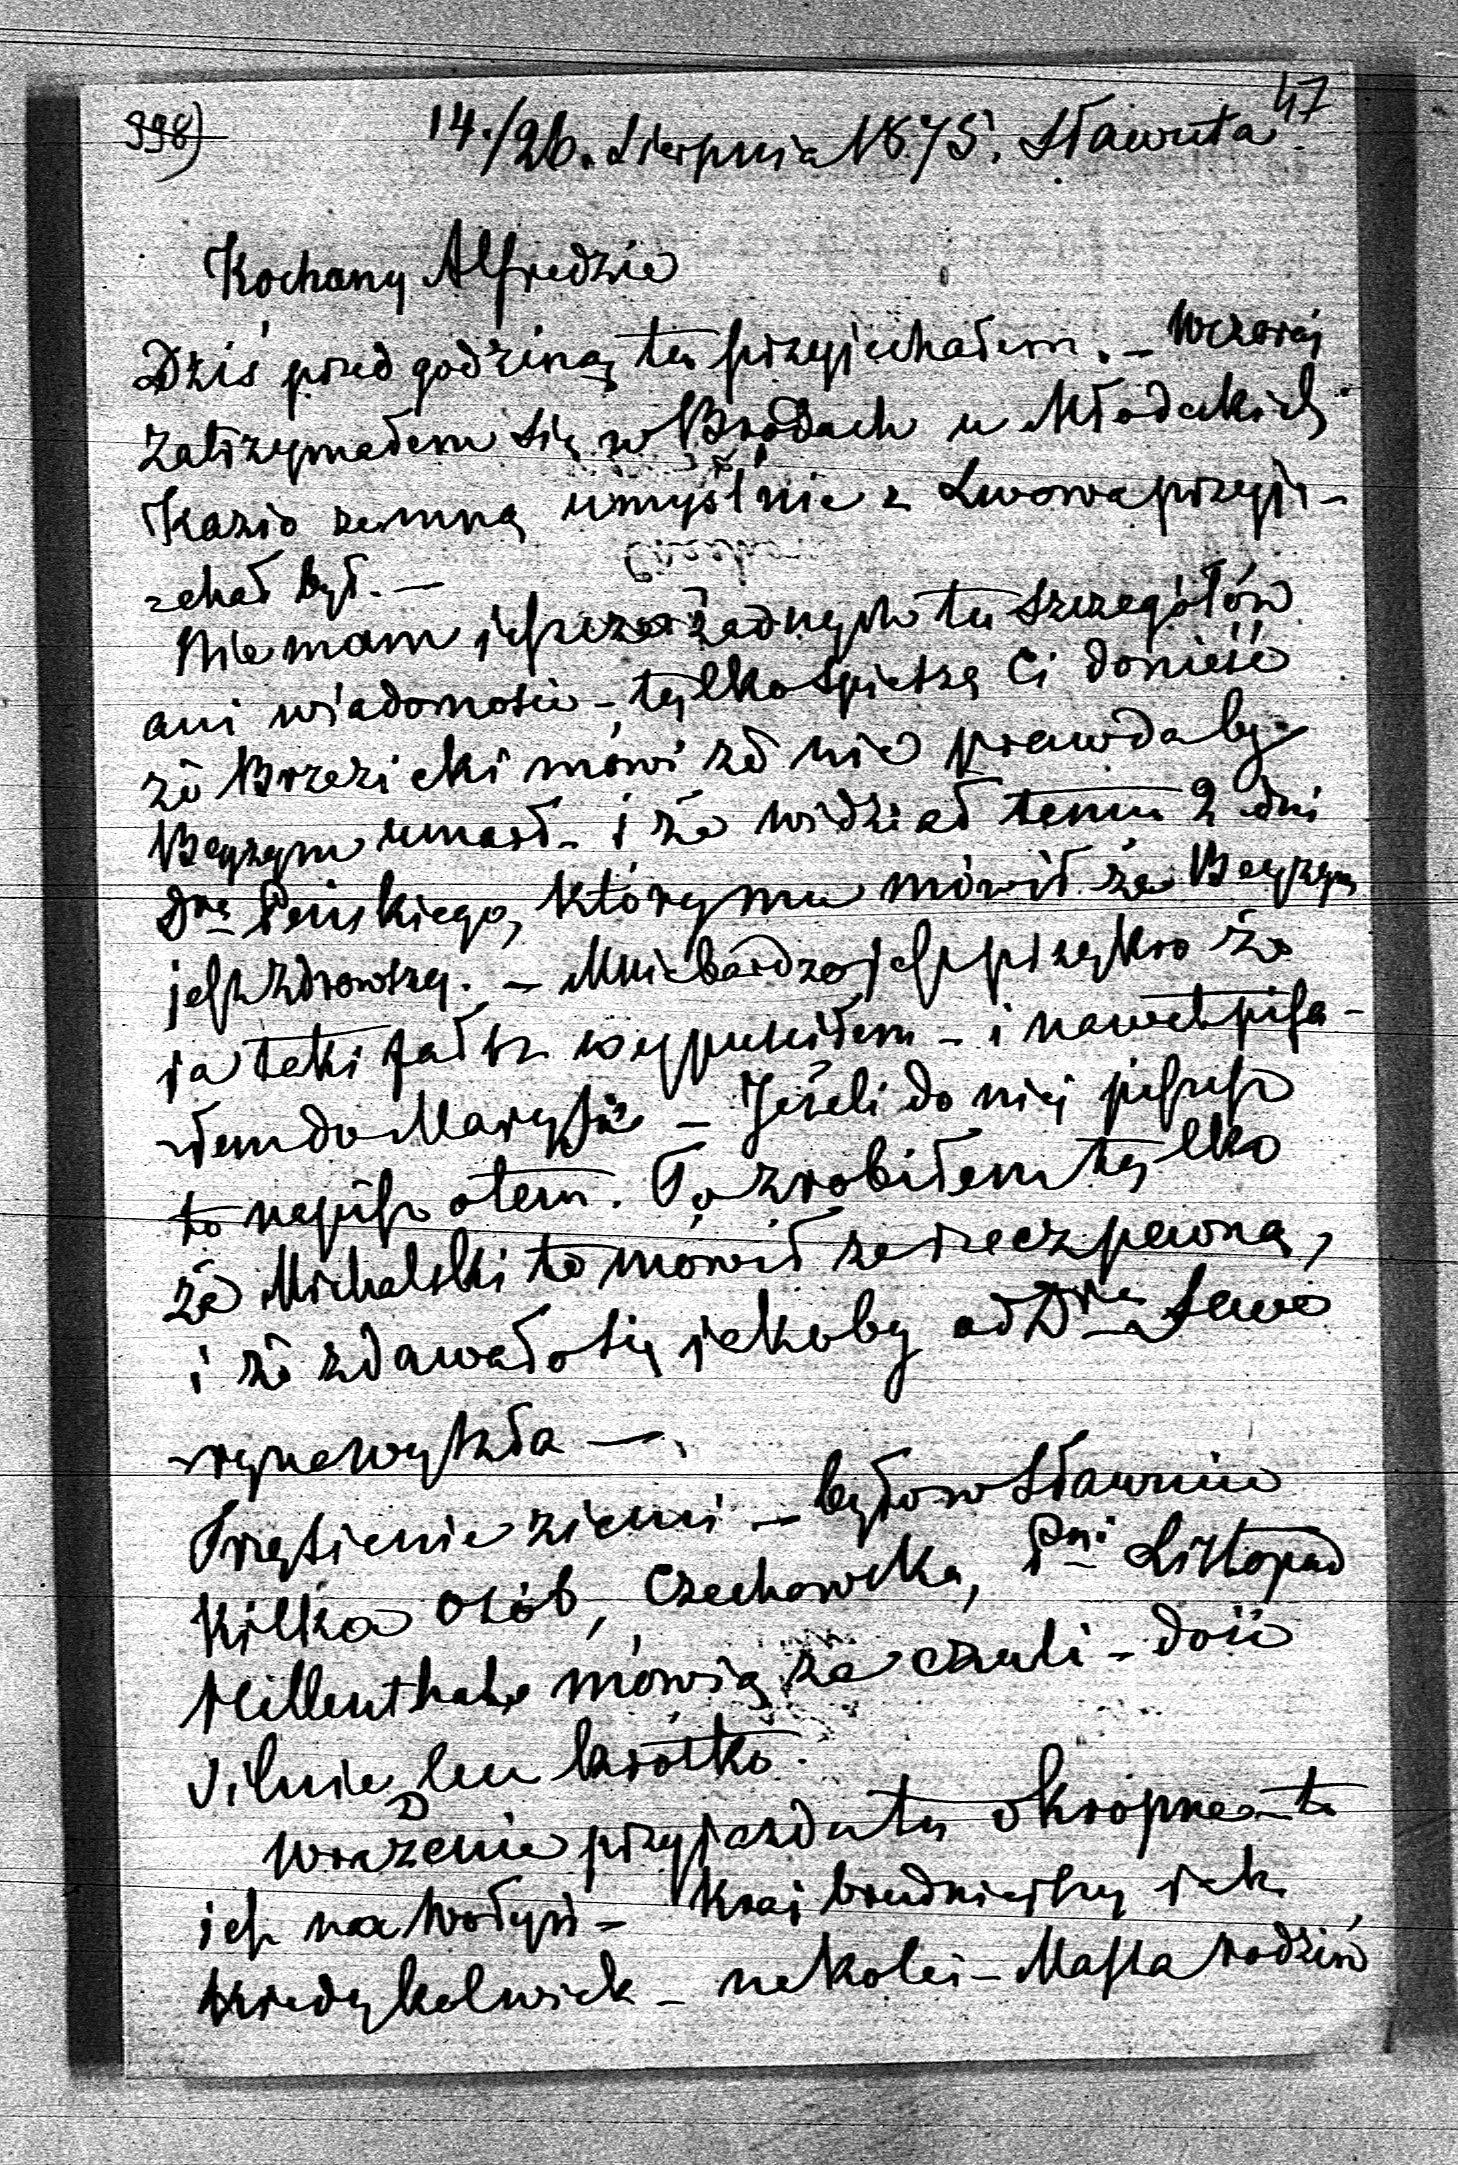 998) 14./26. Sierpnia 1875. Sławuta 47
Kochany Alfredzie
Dziś przed godziną tu przyjechałem. – Wczoraj
zatrzymałem się w Brodach u Młodeckich
Kazio zemną umyślnie z Lwowa przyje-
chał był. –
Nie mam jeszcze żadnych tu szczegółów
ani wiadomości – tylko spieszę Ci donieść
że Brzezicki mówi że nie prawda by
Beyzym umarł – i że widział temu 2 dni
Dra Peńskiego, który mu mówił że Beyzym
jest zdrowszy. – Mnie bardzo jest przykro że
ja taki fałsz wypuściłem – i nawet pisa-
łem do Marysi – Jeżeli do niej piszesz
to napisz o tem. To zrobiłem tylko
że Michalski to mówił za rzecz pewną,
i że zdawało się jakoby od Dra
wyszła –.
Trzęsienie ziemi – było w Sławucie
Kilka osób, Czechowska, Pni Listopad
Millenthal, mówią że czuli – dość
silnie, lecz krótko.
Wrażenie przyjazdu tu okropne – to
jest na Wołyń – Kraj brudniejszy jak
kiedykolwiek – na kolei – Massa rodzin